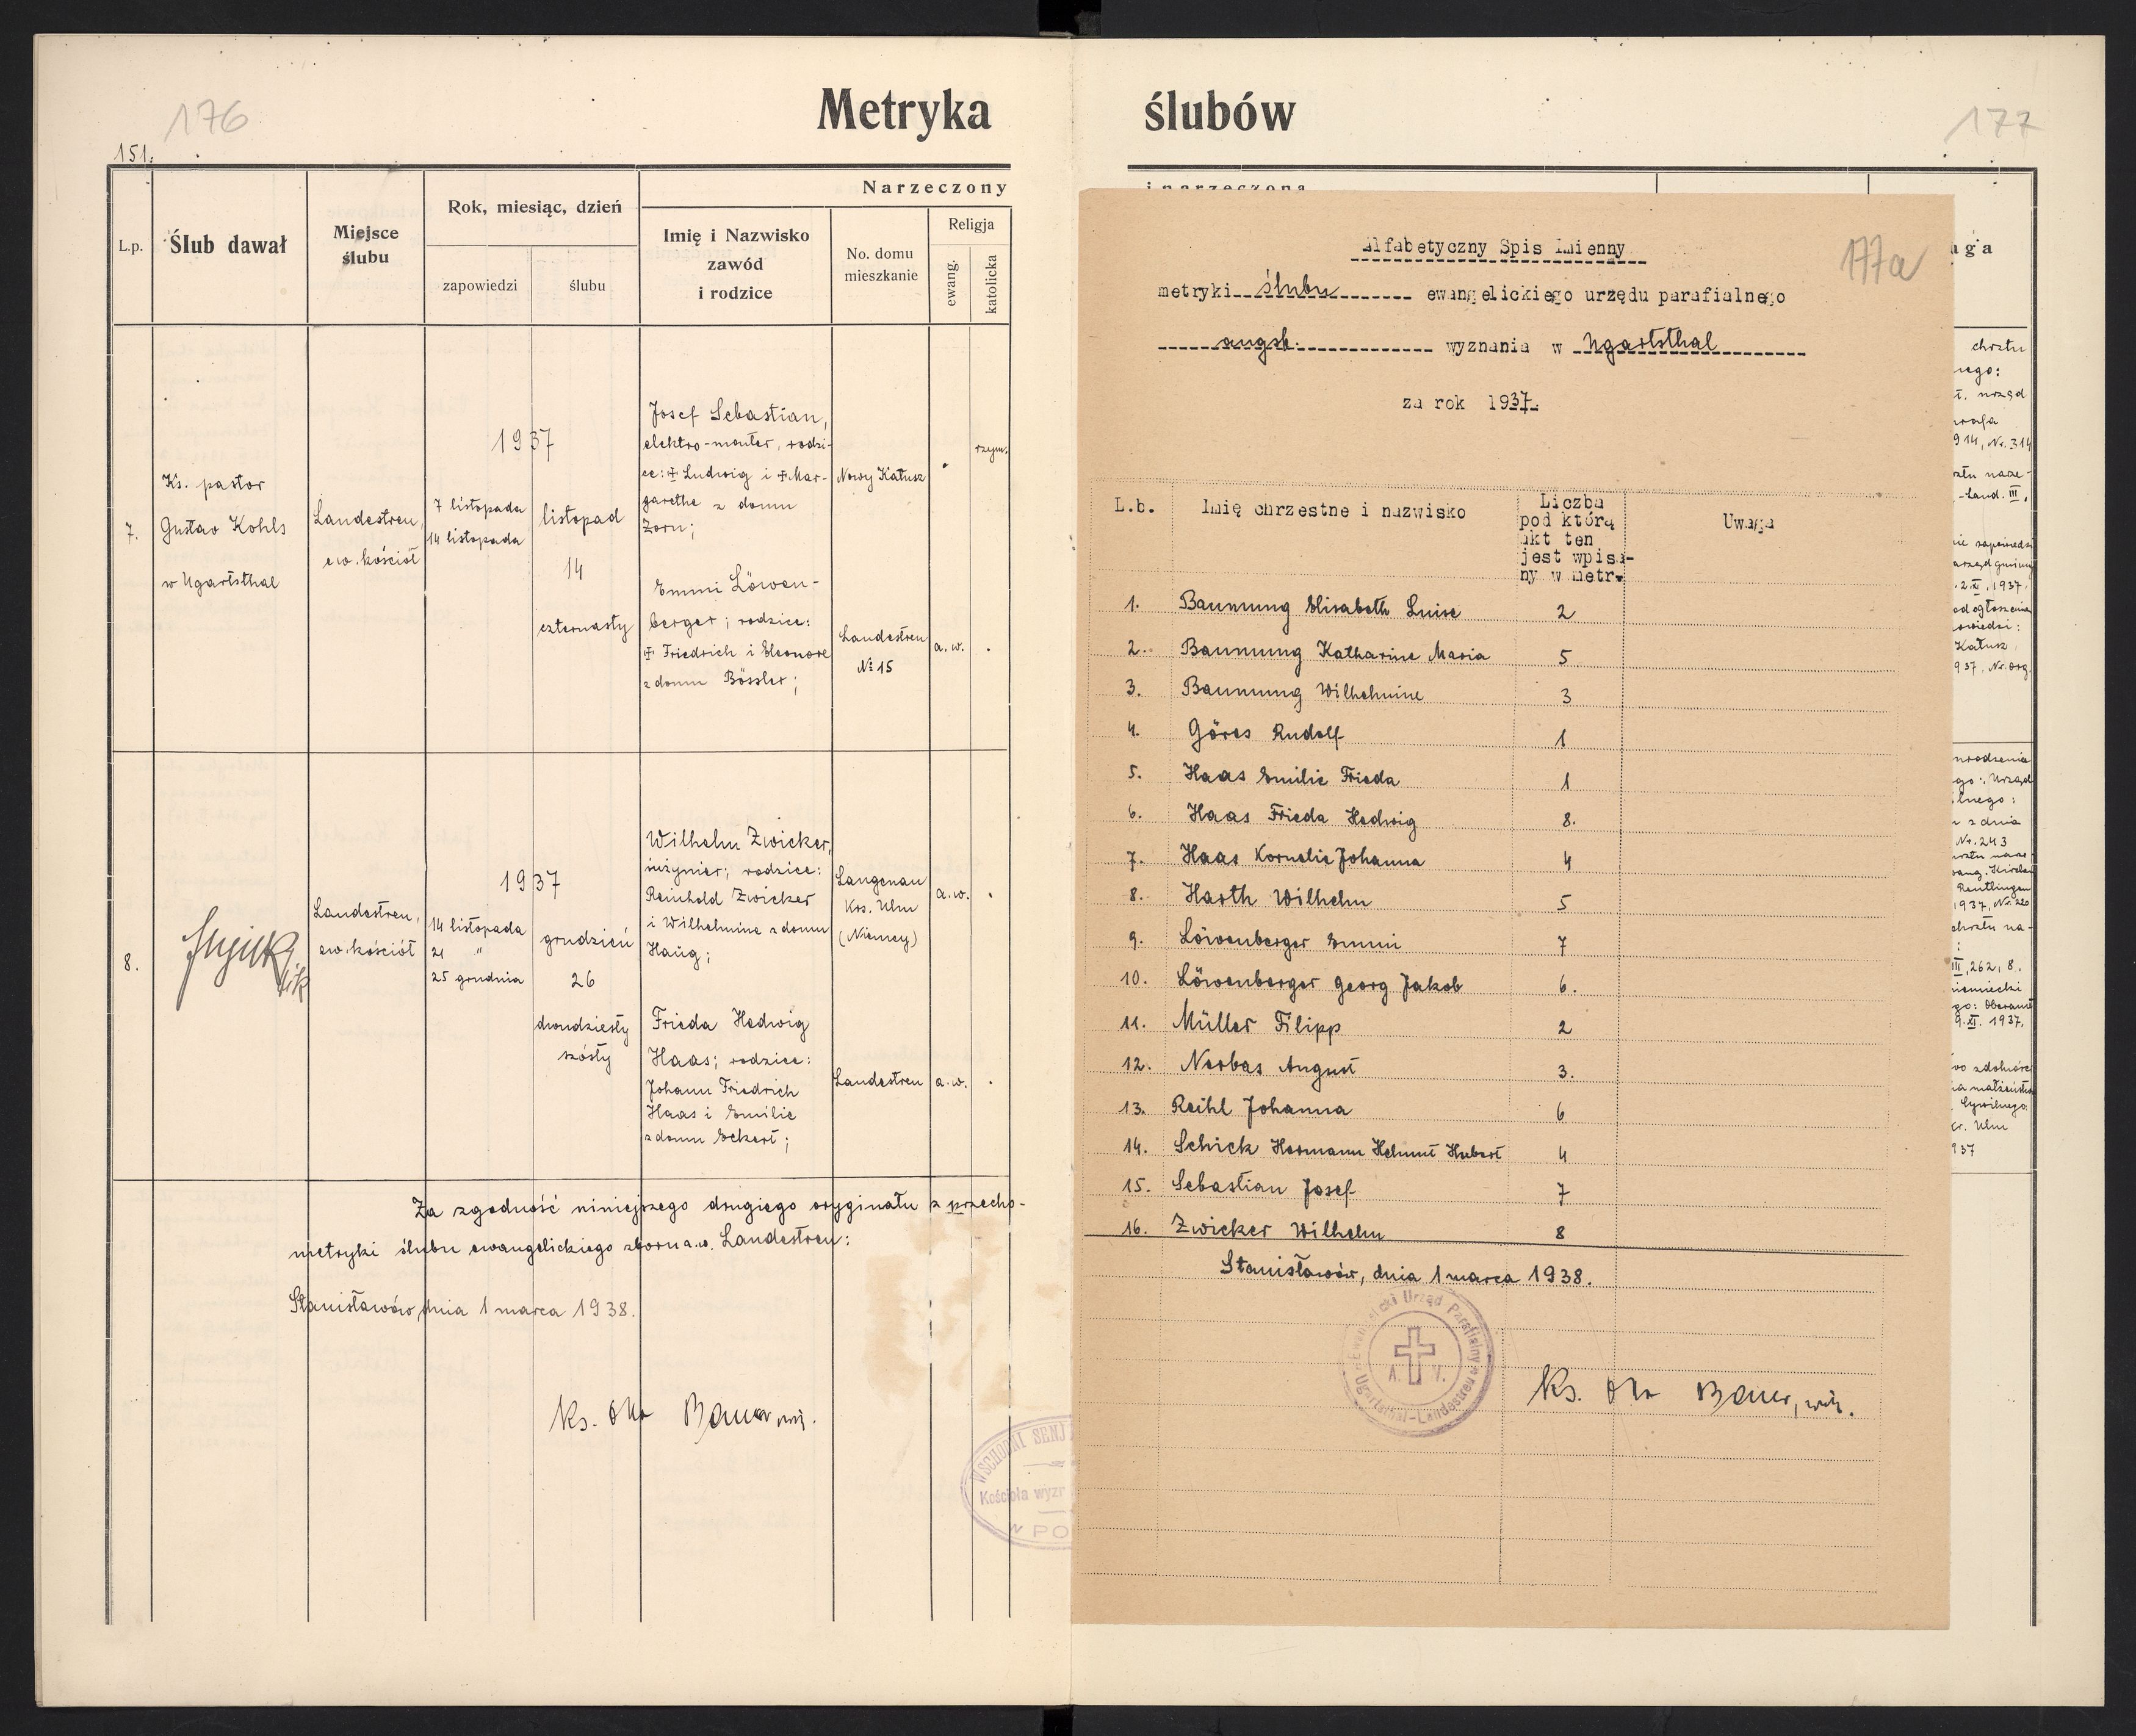 176
Metryka
151.
L.p.
Ślub dawał
Miejsce
ślubu
Rok, miesiąc, dzień
zapowiedzi
ślubu
Narzeczony
Imię i Nazwisko
zawód
i rodzice
No. domu
mieszkanie
Religja
ewang.
katolicka
7.
Ks. pastor
Gustav Kohls
w Ugartsthal
Landestreu,
ew. kościół
1937
7 listopada
14 listopada
listopad
14
czternasty
Josef Sebastian,
elektro-monter, rodzi-
ce: ‡ Ludwig i ‡ Mar-
garethe z domu
Zorn;
Nowy Kałusz
rzym.
Emmi Löwen-
berger; rodzice:
‡ Friedrich i Eleonore
z domu Bössler;
Landestreu
№ 15
a.w.
8.
Landestreu,
ew. kościół
1937
14 listopada
21 "
25 grudnia
grudzień
26
dwudziesty
szósty
Wilhelm Zwicker,
inżynier; rodzice:
Reinhold Zwicker
i Wilhelmine z domu
Haüg;
Langenau
Krs. Ulm
(Niemcy)
a.w.
Frieda Hedwig
Haas; rodzice:
Johann Friedrich
Haas i Emilie
z domu Eckert;
Landestreu
a.w.
Za zgodność niniejszego drugiego oryginału z przecho-
metryki ślubu ewangelickiego zboru a.w. Landestreu:
Stanisławów, dnia 1 marca 1938.
Ks. Otto Bauer, wik.
WSCHODNI SENJ
Kościoła wyzn
w PO
ślubów
177
i narzeczona
aga
177a
Alfabetyczny Spis Imienny
metryki ślubu ewangelickiego urzędu parafialnego
augsb. wyznania w Ugartsthal
za rok 1937.
L.b.
Imię chrzestne i nazwisko
Liczba
pod którą
akt ten
jest wpisa-
ny w metr.
Uwaga
1. Baumung Elisabeth Luise 2
2. Baumung Katharine Maria 5
3. Baumung Wilhelmine 3
4. Göres Rudolf 1
5. Haas Emilie Frieda 1
6. Haas Frieda Hedwig 8.
7. Haas Kornelie Johanna 4
8. Harth Wilhelm 5
9. Löwenberger Emmi 7
10. Löwenberger Georg Jakob 6.
11. Müller Filipp 2
12. Nerbas August 3.
13. Reihl Johanna 6
14. Schick Hermann Helmut Hubert 4
15. Sebastian Josef 7
16. Zwicker Wilhelm 8
Stanisławów, dnia 1 marca 1938.
Ewangelicki Urząd Parafialny
Ugartsthal-Landestreu
A. W.
Ks. Otto Bauer, wik.
chrztu
nego:
914, Nr. 314
ztu narze-
-Land. III,
nie zapowiedzi
2.XI.1937.
od ogłoszenia
Kałusz
937, Nr. org.
urodzenia
go: Urząd
lnego:
z dnia
Nr. 243
Reutlingen
1937, Nr. 26
chrztu na-
III, 262, 8.
niemiecki
go: Oberamt
9. XI. 1937.
Cywilnego
kr. Ulm
937